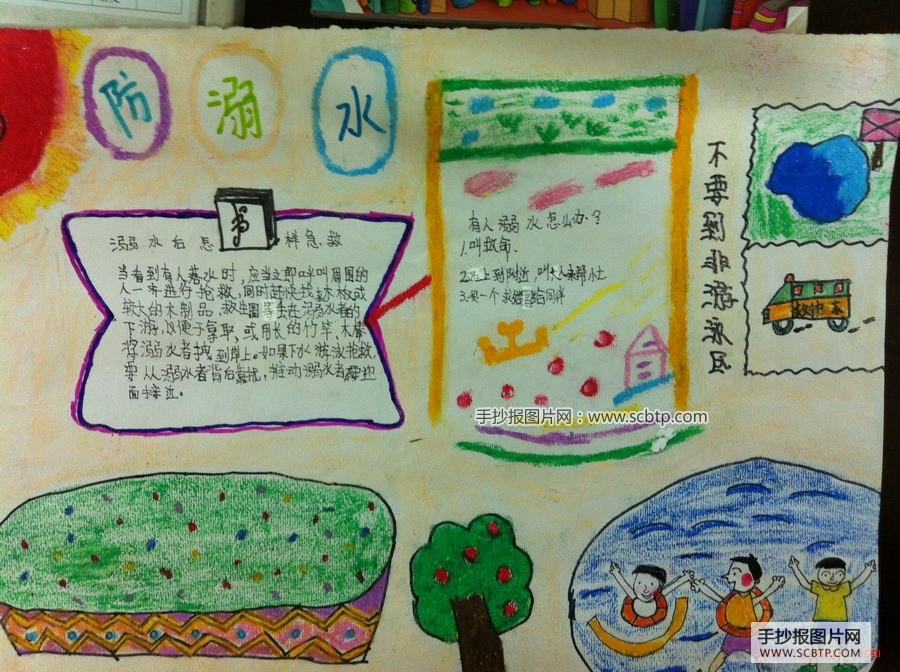 防
溺
水
溺水后怎
样急救
当看到有人落水时，应当立即呼叫周围的
人一齐进行抢救，同时赶快找木板或
较大的木制品，救生圈等在溺水者的
下游，以便于拿取，或用长的竹竿、木棒
将溺水者拽到岸上。如果下水游泳抢救，
要从溺水者背后靠扰，推动溺水者
面接近。
有人溺水怎么办？
1.叫救命。
2.马上到附近，叫大人来帮忙
3.
不要到非游泳区
手抄报图片网：www.scbtp.com
手抄报图片网
WWW.SCBTP.COM